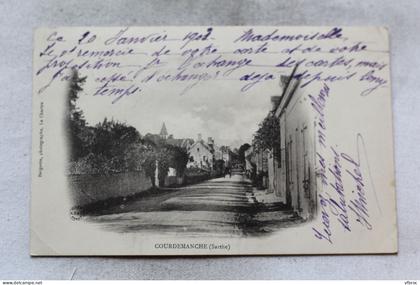 Ce 20 Janvier 1902 Mademoiselle,
Je vous remercie de votre carte et de votre
proposition d'échange des cartes, mais
j'ai cessé d'échanger déjà depuis long
temps,
Recevez mes meilleures
salutations
Bergeret, photographe, La Chartre
COURDEMANCHE (Sarthe)